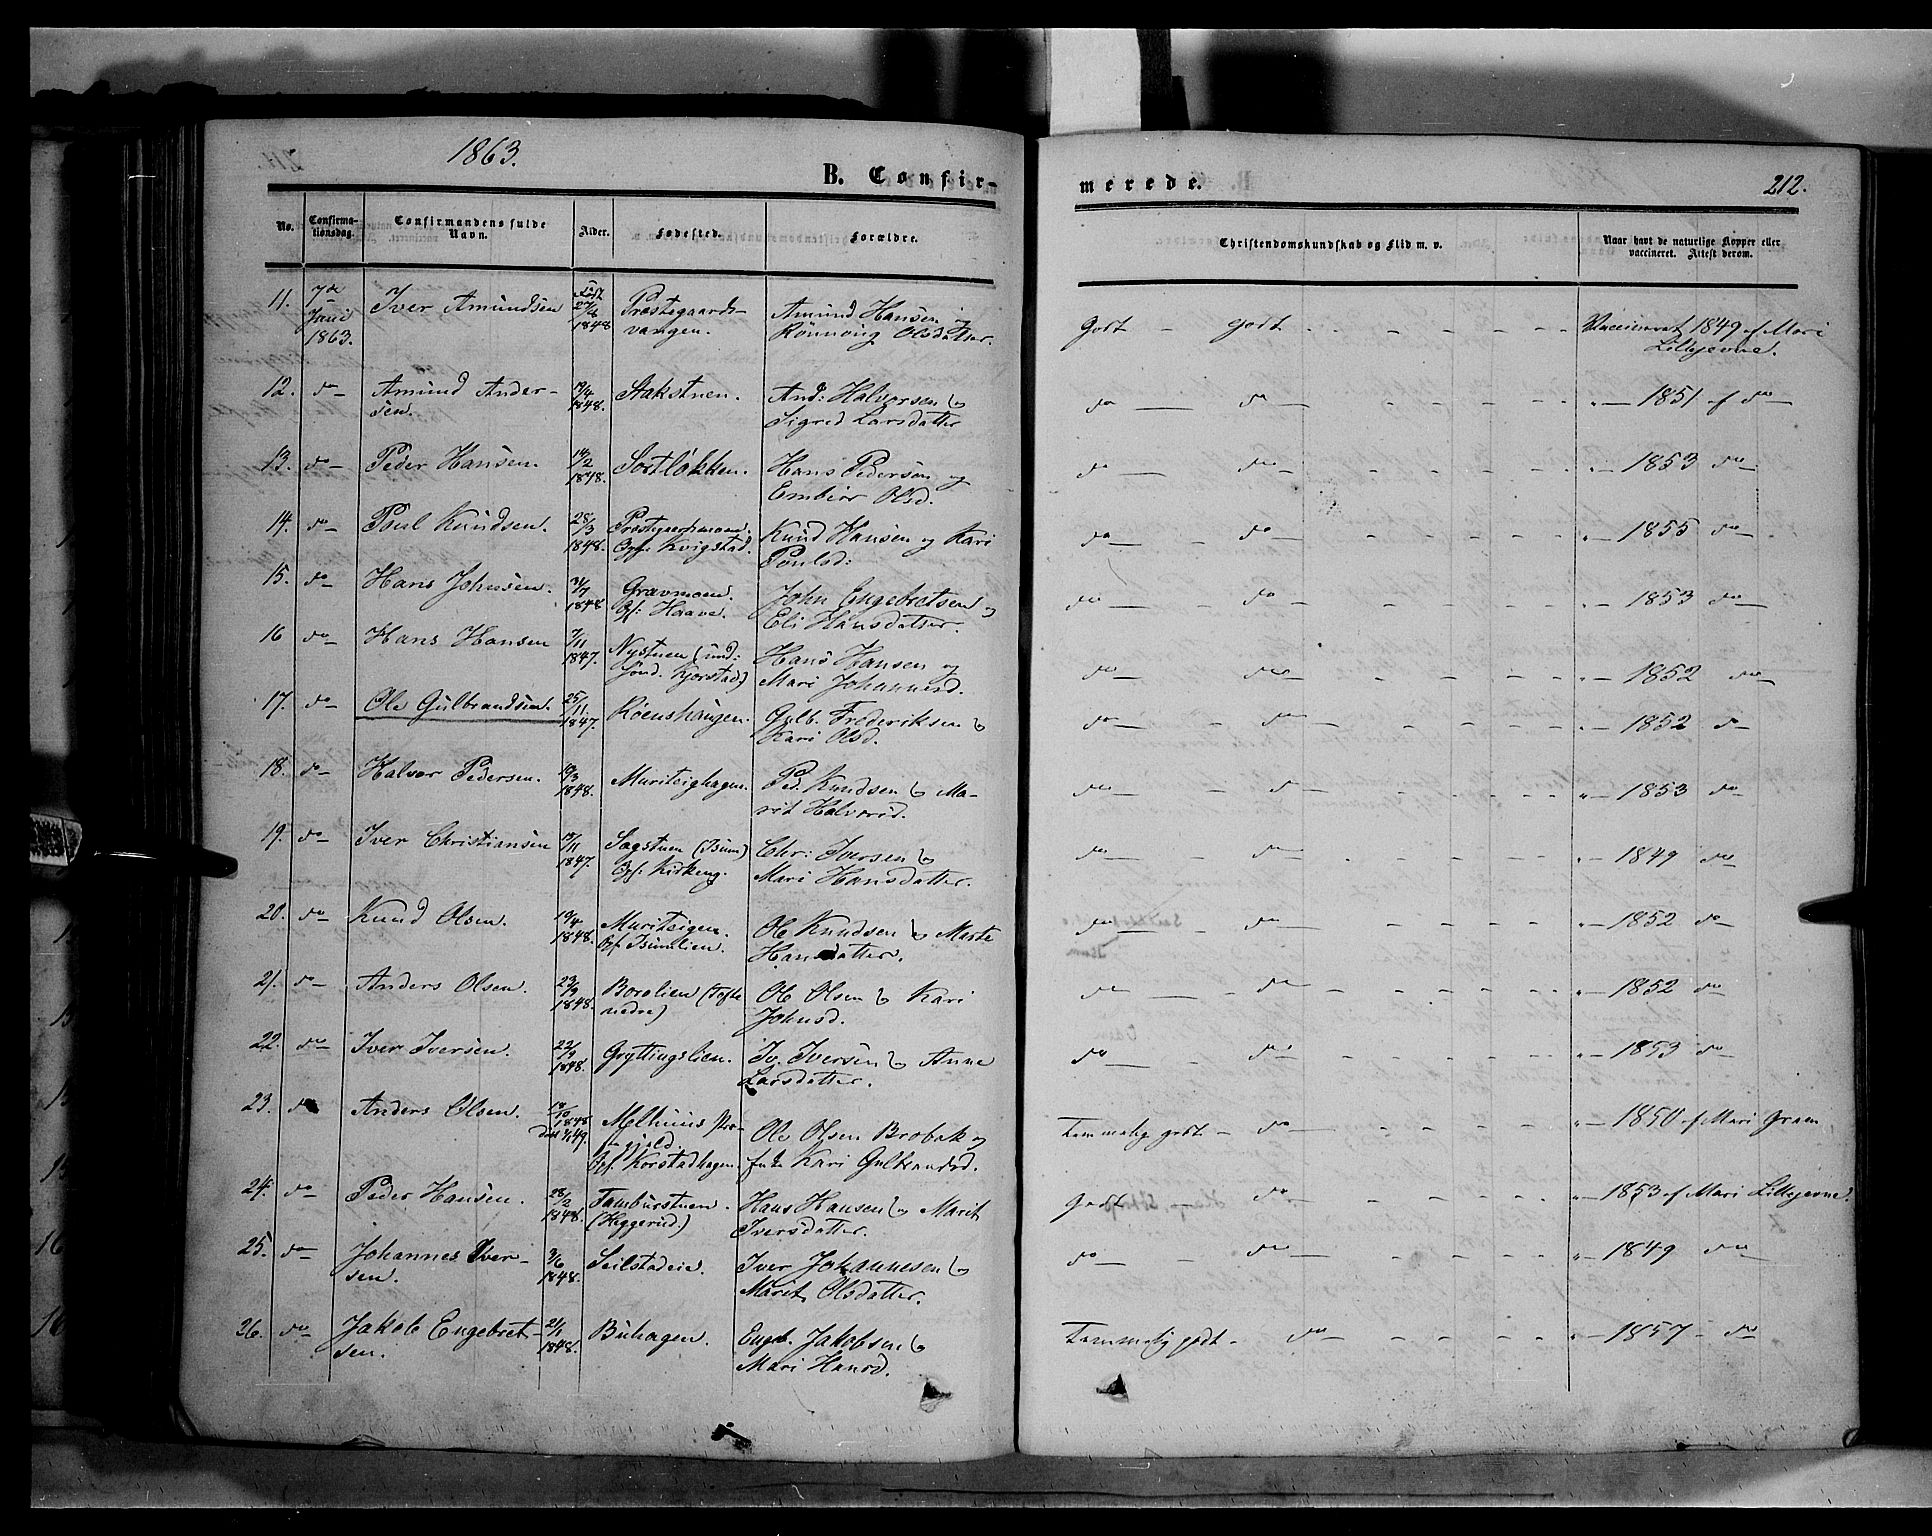 1863.
B. Confir-
merede.
212.
No.
Confirma-
tionsdag.
Confirmandens fulde
Navn.
Alder.
Fødested.
Forældre.
Christendomskundskab og Flid m. v.
Naar havt de naturlige Kopper eller
vaccineret. Attest derom.
11. 7de Juni 1863. Iver Amundsen født 27/4 1848 Præstegaards-
vangen. Amund Hansen
Rönnoug Olsdatter. Godt - godt Vaccineret 1849 af Mari
Lillejevne.
12. do Amund Ander-
sen. 19/4 1848. Stakstuen. And: Halvorsen og
Sigrid Larsdatter do do " 1851 af do
13. do Peder Hansen. 14/2 1848. Sortløkken. Hans Pedersen og
Embior Olsd. do do " 1853 do
14. do Poul Knudsen. 28/3 1848. Opf: Kvigstad. Knud Hansen og Kari
Poulsd: do do " 1855 do
15. do Hans Johnsen. 31/7 1848 Gravmoen.
Opf: Haave. John Engebretsen og
Eli Hansdatter. do do " 1853 do
16 do Hans Hansen 7/11 1847. Nystuen (und:
Sönd. Kjorstad) Hans Hansen og
Mari Johannesd. do do " 1852 do
17. do Ole Gulbrandsen. 25/11 1847. Röenshaugen. Gulb. Frederiksen og
Kari Olsd. do do " 1852 do
18. do Halvor Pedersen. 10/3 1848. Muriteighagen. Ped. Knudsen og Ma-
rit Halvorsd. do do " 1853 do
19. do Iver Christiansen 19/11 1847. Sagstuen (Isum)
Opf: Kirkeng. Chr: Iversen og
Mari Hansdatter. do do " 1849 do
20. do Knud Olsen. 19/4 1848. Muriteigen.
Opf. Isumlien. Ole Knudsen og Marte
Hansdatter. do do " 1852 do
21. do Anders Olsen. 23/9 1848. Borolien (Tofte
nedre) Ole Olsen og Kari
Johnsd. do do " 1852 do
22. do Iver Iversen. 22/9 1848. Gryttingslien. Iv. Iversen og Anne
Larsdatter. do do " 1853 do
23. do Anders Olsen. 18/10 1848 Melhuus Præ-
stegjeld.
Opf. Korstadhagen. Ole Olsen Brobak og
Kari Gulbrandsd. Temmelig godt - do " 1850 af Mari Graem
24. do Peder Hansen. 28/2 1848. Tamburstuen.
(Heggerud.) Hans Hansen og Marit
Iversdatter. Godt do " 1853 af Mari Lillejevne.
25. do Johannes Iver-
sen. 3/6 1848. Seilstadeie. Iver Johannesen og
Marit Olsdatter. do do " 1849 do
26. do Jakob Engebret-
sen. 21/1 1848. Buhagen. Engb. Jakobsen og
Mari Hansd. Temmelig godt - do " 1857 - do